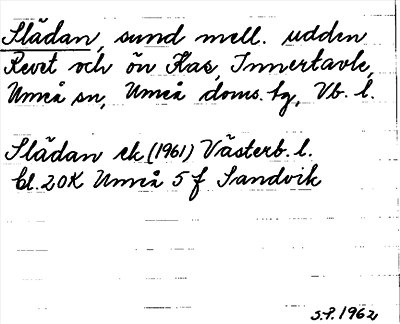 Slädan, sund mell. udden
Revet och ön Kas, Innertavle,
Umeå sn, Umeå doms. tg, Vb. l.
Slädan ek (1961) Västerb. l.
bl. 20K Umeå 5 f Sandvik
S.P. 1962